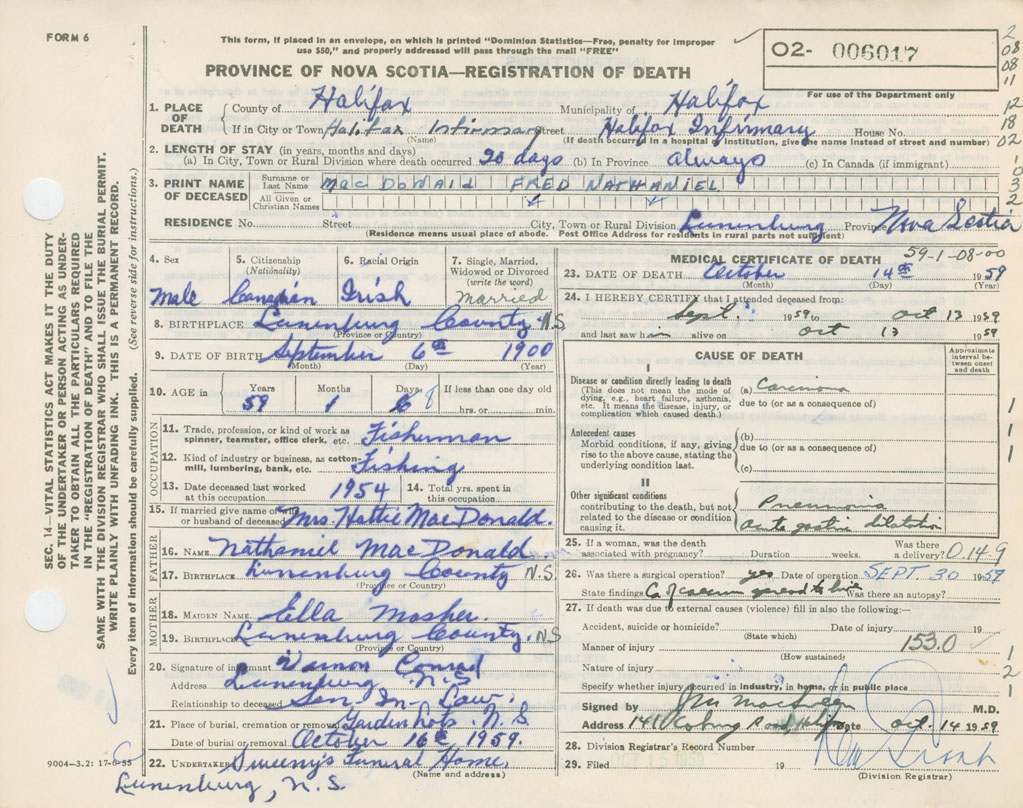 FORM 6
This form, if placed in an envelope, on which is printed "Dominion Statistics—Free, penalty for improper
use $50," and properly addressed will pass through the mail "FREE"
O2- 006017
For use of the Department only
PROVINCE OF NOVA SCOTIA—REGISTRATION OF DEATH
SEC. 14—VITAL STATISTICS ACT MAKES IT THE DUTY
OF THE UNDERTAKER OR PERSON ACTING AS UNDER-
TAKER TO OBTAIN ALL THE PARTICULARS REQUIRED
IN THE "REGISTRATION OF DEATH" AND TO FILE THE
SAME WITH THE DIVISION REGISTRAR WHO SHALL ISSUE THE BURIAL PERMIT.
WRITE PLAINLY WITH UNFADING INK. THIS IS A PERMANENT RECORD.
Every item of information should be carefully supplied. (See reverse side for instructions.)
1. PLACE OF DEATH { County of Halifax Municipality of Halifax
If in City or Town Halifax Infirmary Street Halifax Infirmary House No.
(Name) (If death occurred in a hospital or institution, give the name instead of street and number)
2. LENGTH OF STAY (in years, months and days)
(a) In City, Town or Rural Division where death occurred 20 days (b) In Province always (c) In Canada (if immigrant)
3. PRINT NAME OF DECEASED { Surname or Last Name MacDONALD FRED NATHANIEL
All Given or Christian Names
RESIDENCE No. Street City, Town or Rural Division Lunenburg Province Nova Scotia
(Residence means usual place of abode. Post Office Address for residents in rural parts not sufficient)
4. Sex 5. Citizenship (Nationality) 6. Racial Origin 7. Single, Married, Widowed or Divorced (write the word)
Male Canadian Irish Married
8. BIRTHPLACE Lunenburg County N.S.
(Province or Country)
9. DATE OF BIRTH September 6th 1900
(Month) (Day) (Year)
10. AGE in { Years 59 Months 1 Days 8 If less than one day old
hrs. or min.
OCCUPATION
11. Trade, profession, or kind of work as spinner, teamster, office clerk, etc. Fisherman
12. Kind of industry or business, as cotton-mill, lumbering, bank, etc. Fishing
13. Date deceased last worked at this occupation 1954 14. Total yrs. spent in this occupation
15. If married give name of wife or husband of deceased Mrs. Hattie MacDonald.
FATHER
16. NAME Nathaniel MacDonald
17. BIRTHPLACE Lunenburg County N.S.
(Province or Country)
MOTHER
18. MAIDEN NAME Ella Mosher.
19. BIRTHPLACE Lunenburg County. NS
(Province or Country)
20. Signature of informant Vernon Conrad
Address Lunenburg N.S
Relationship to deceased Son In Law.
21. Place of burial, cremation or removal Garden Lots. N.S.
Date of burial or removal October 16th 1959.
22. UNDERTAKER Sweeny's Funeral Home.
(Name and address)
Lunenburg, N.S.
9004-3.2: 17-6-55
MEDICAL CERTIFICATE OF DEATH 59-1-08-00
23. DATE OF DEATH October 14th 1959
(Month) (Day) (Year)
24. I HEREBY CERTIFY that I attended deceased from:
Sept. 1959 to Oct 13 1959
and last saw him alive on Oct 13 1959
CAUSE OF DEATH
Approximate interval between onset and death
I
Disease or condition directly leading to death
(This does not mean the mode of dying, e.g., heart failure, asthenia, etc. It means the disease, injury, or complication which caused death.)
(a) Carcinoma
due to (or as a consequence of)
Antecedent causes
Morbid conditions, if any, giving rise to the above cause, stating the underlying condition last.
(b)
due to (or as a consequence of)
(c)
II
Other significant conditions
contributing to the death, but not related to the disease or condition causing it.
Pneumonia
Acute gastric dilatation
25. If a woman, was the death associated with pregnancy? Duration weeks. Was there a delivery? 0.149
26. Was there a surgical operation? yes Date of operation SEPT. 30 1959
State findings Ca of caecum spread to liver Was there an autopsy?
27. If death was due to external causes (violence) fill in also the following:—
Accident, suicide or homicide? Date of injury 19
(State which)
Manner of injury 153.0
(How sustained)
Nature of injury
Specify whether injury occurred in industry, in home, or in public place
Signed by M.D.
Address Coburg Road, Date Oct. 14 1959
28. Division Registrar's Record Number
29. Filed OCT 15 1959 19
(Division Registrar)
2
08
08
11
12
18
02
1
0
3
2
1
1
1
1
2
1